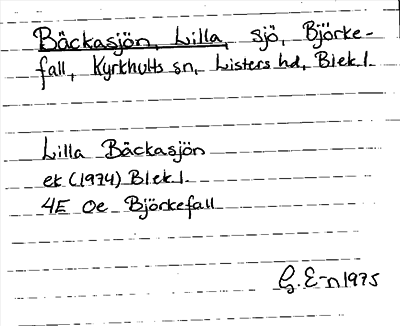 Bäckasjön, Lilla, sjö, Björke-
fall, Kyrkhults sn, Listers hd, Blek.l.
Lilla Bäckasjön
ek (1974) Blek.l.
4E 0e Björkefall
G. E-n 1975